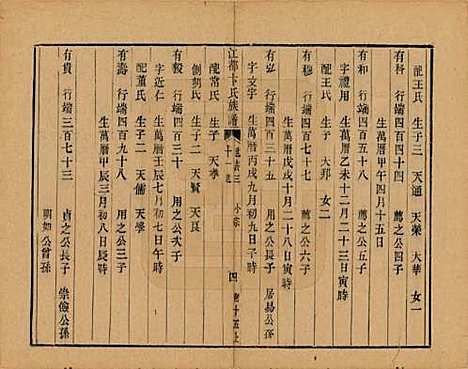 配王氏 生子三 天通 天榮 大華 女一
有科 行端四百四十四 薦之公四子
生萬曆甲午四月十五日
有和 行端四百五十八 薦之公五子
字禮用 生萬曆乙未十二月二十三日寅時
配王氏 生子一 大邦 女二
有穆 行端四百七十七 薦之公六子
生萬曆戊戌十月二十八日寅時
有弘 行端四百三十五 用之公長子 居易公孫
字文宇 生萬曆丙戌九月初九日子時
配常氏 生子一 天孝
江都卞氏族譜 卷十一 小宗 四
側胡氏 生子二 天賢 天良
有毅 行端四百三十 用之公次子
字近仁 生萬曆壬辰七月初七日午時
配董氏 生子二 天儒 天學
有壽 行端四百九十八 用之公三子
生萬曆甲辰三月初八日辰時
有貴 行端三百七十三 貞之公長子 崇儉公孫
明如公曾孫